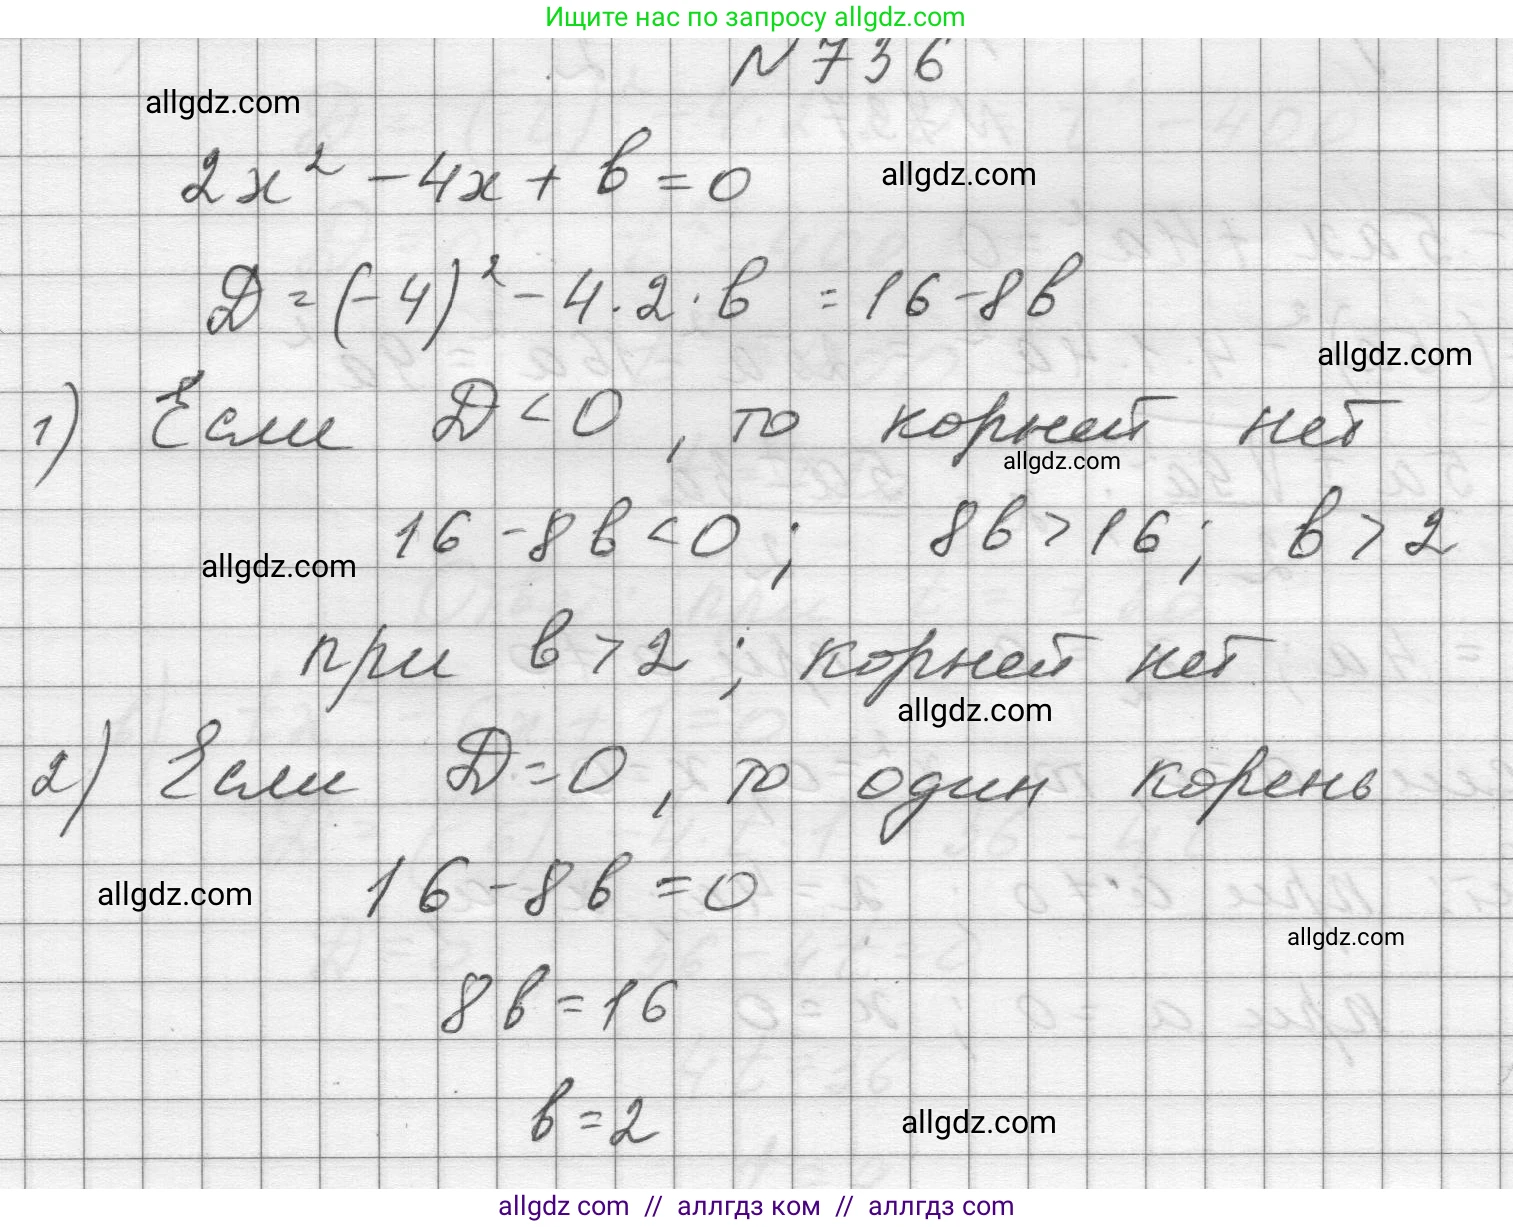 Ищите нас по запросу allgdz.com
N 736
allgdz.com
2x² - 4x + b = 0
allgdz.com
D = (-4)² - 4 · 2 · b = 16 - 8b
allgdz.com
1) Если D < 0, то корней нет
allgdz.com
16 - 8b < 0; 8b > 16; b > 2
allgdz.com
при b > 2; корней нет
allgdz.com
2) Если D = 0, то один корень
16 - 8b = 0
allgdz.com
allgdz.com
8b = 16
b = 2
allgdz.com
allgdz com // аллгдз ком // аллгдз com